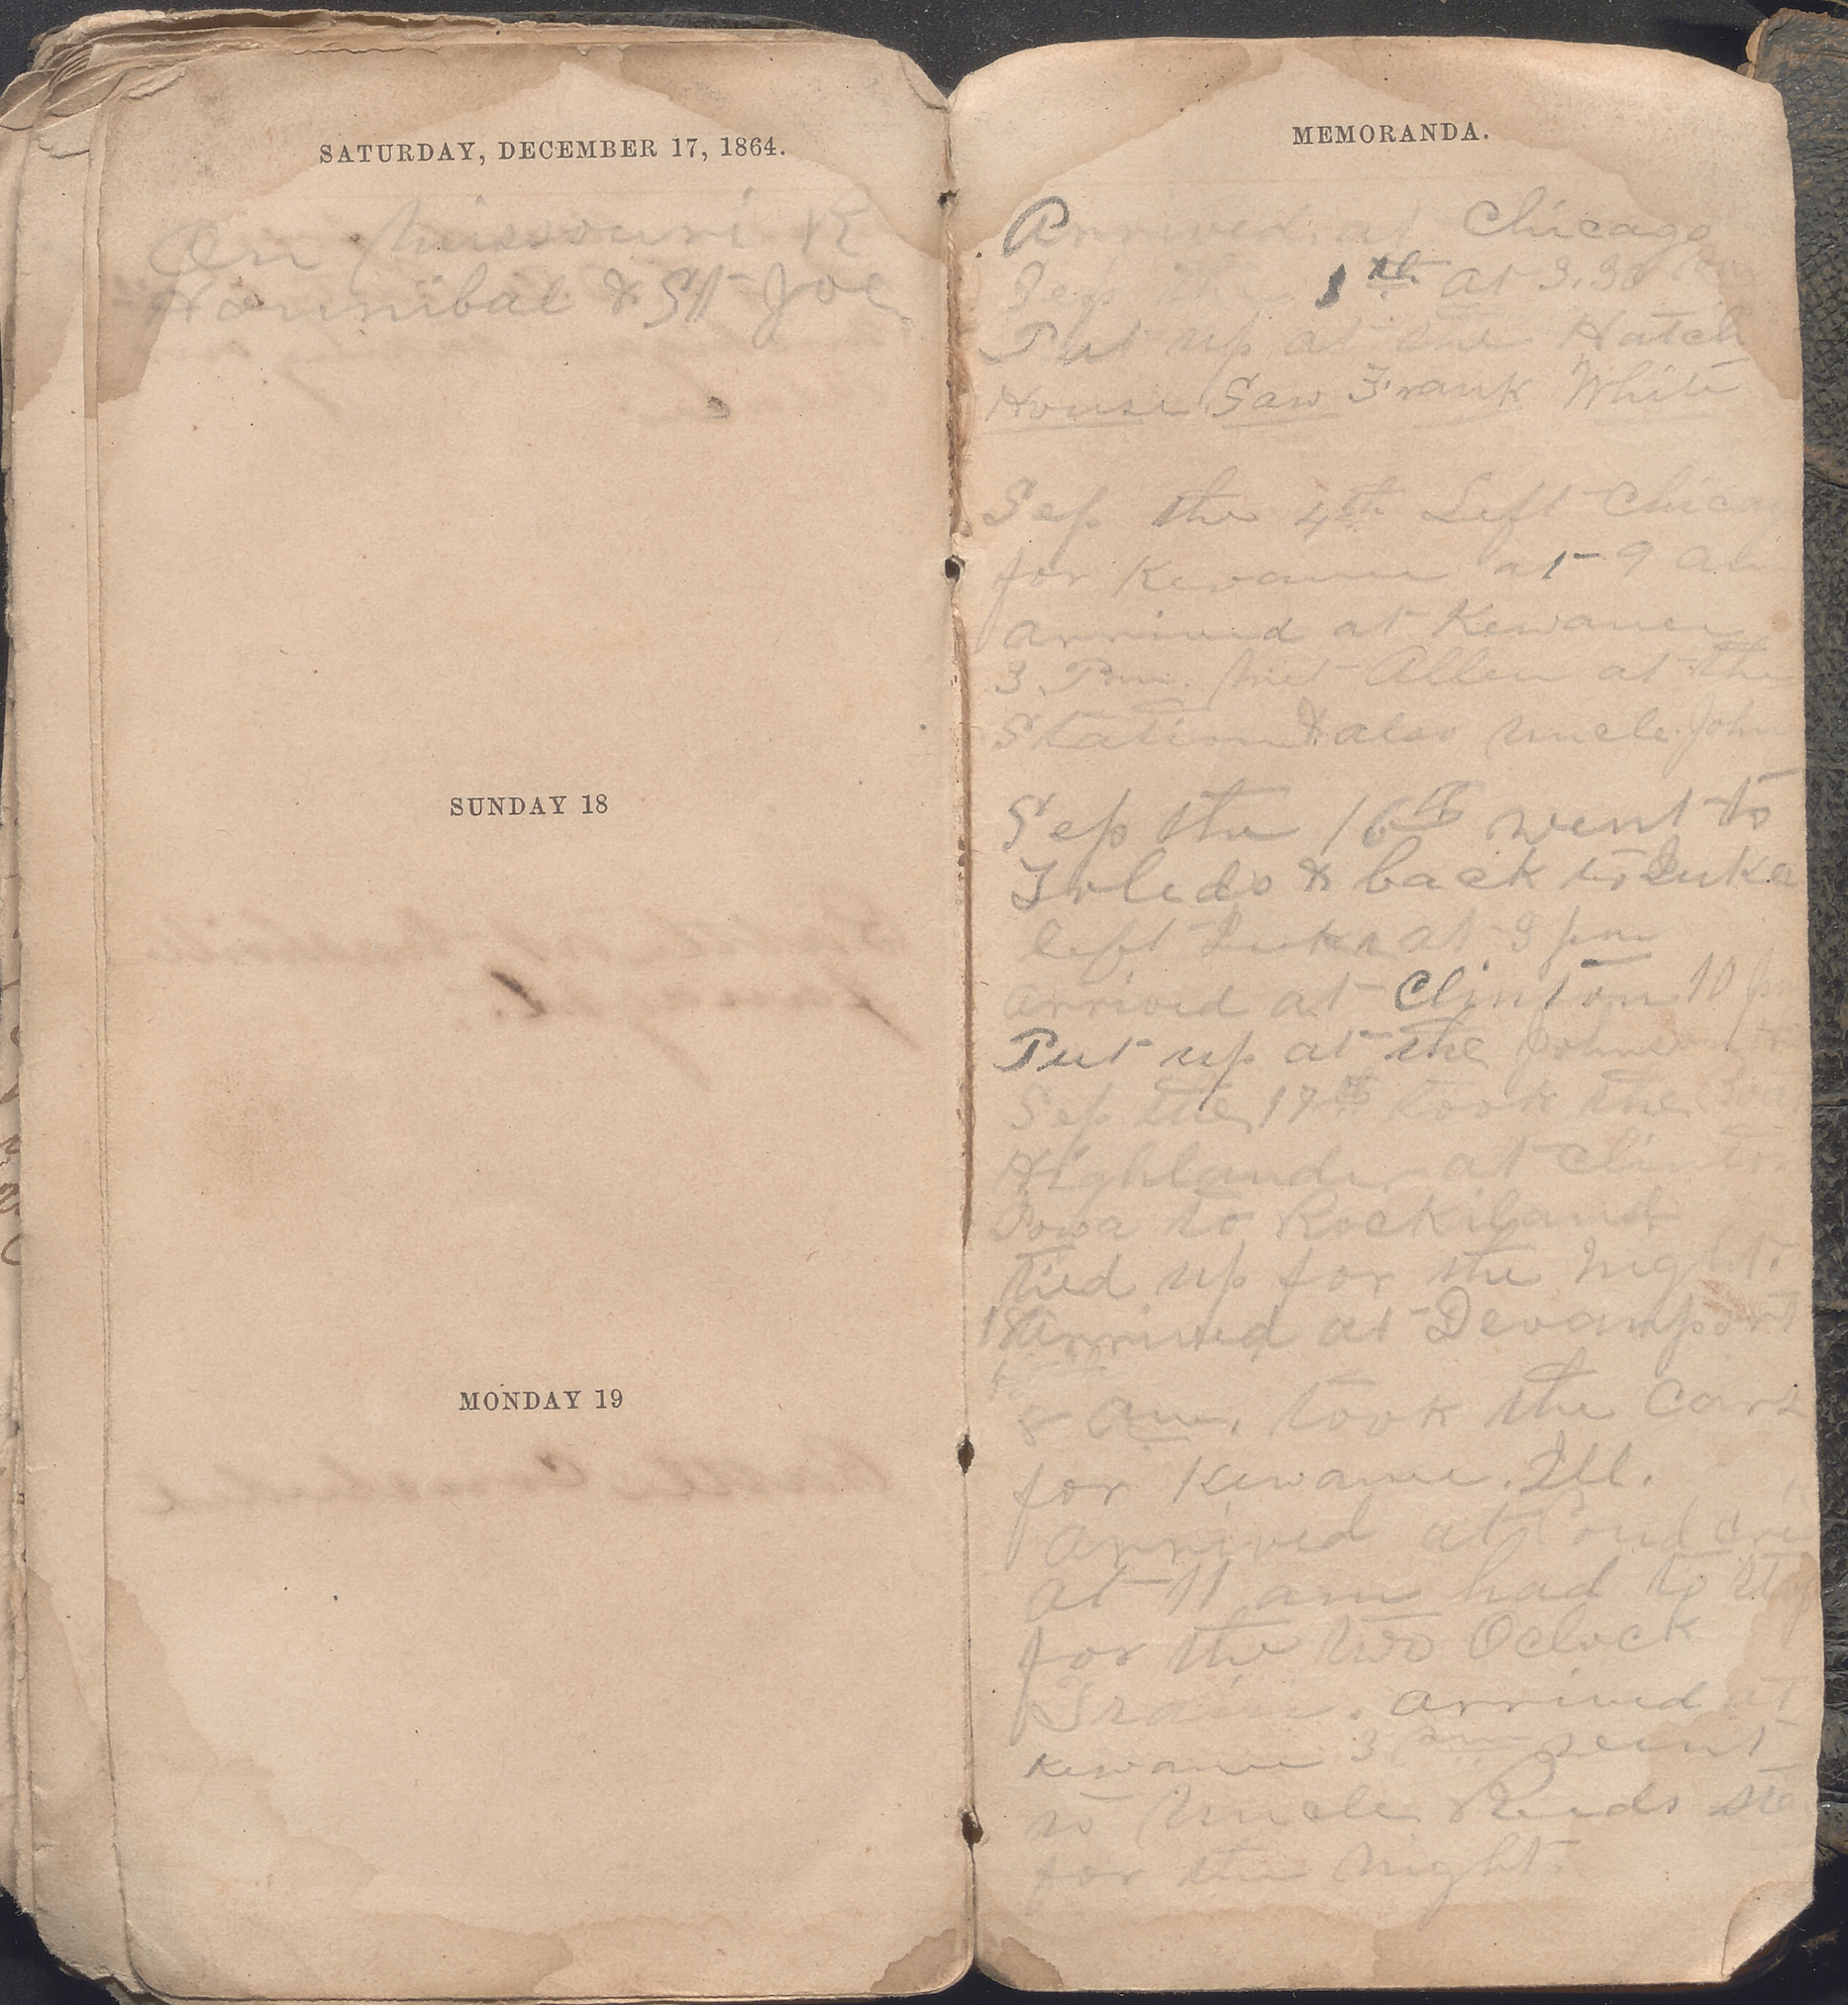 SATURDAY, DECEMBER 17, 1864.
On Missouri R
Hannibal & St Joe
SUNDAY 18
MONDAY 19
MEMORANDA.
Arrived at Chicago
Sep the 1st at 3.30
Put up at the Hatch
House Saw Frank White
Sep the 4th Left Chicag
for Kewanee at 9 am
arrived at Kewanee
3 Pm. Met Allen at the
Station & also uncle John
Sep the 16th went to
Toledo & back to Luka
left Luka at 3 pm
arrived at Clinton 10 pm
Put up at the Johnson
Sep the 17th took the Boat
Highlander at Clinton
Iowa to Rockiland
tied up for the night.
18 Arrived at Devamport
8 am. took the Cars
for Kewanee. Ill.
arrived at
at 11 am had to
for the two Oclock
Train. arrived at
Kewanee 3 pm went
to Uncle Reeds
for the night.